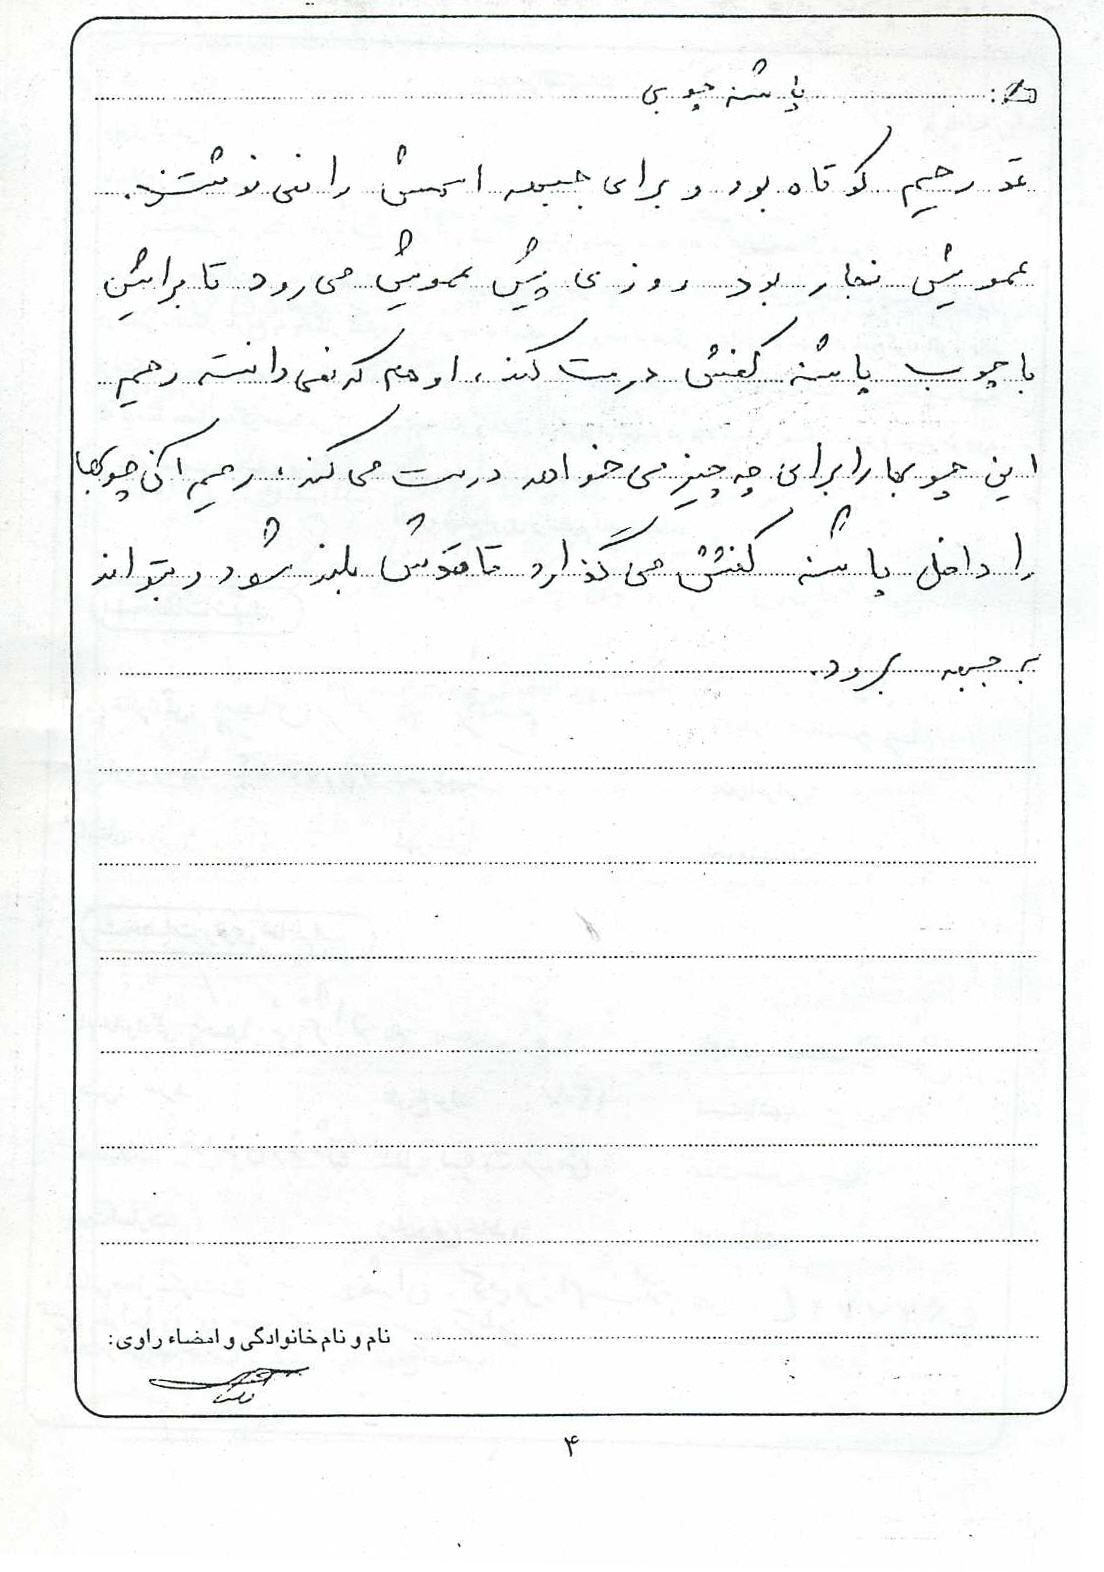 پاشنه چوبی
قد رحیم کوتاه بود و برای جبهه اسمش را نمی نوشتند.
عمویش نجار بود روزی پیش عمویش می رود تا برایش
با چوب پاشنه کفش درست کند، او هم که نمی دانسته رحیم
این چوبها را برای چه چیز می خواهد درست می کند، رحیم آن چوبها
را داخل پاشنه کفشش می گذارد تا قدش بلند شود و بتواند
به جبهه برود.
نام و نام خانوادگی و امضاء راوی:
۴